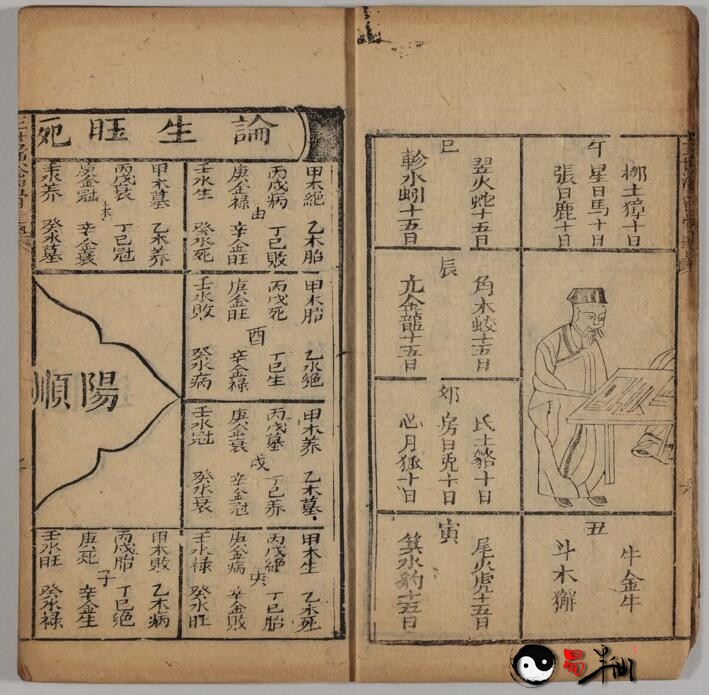 午
柳土獐十日
星日馬十日
張日鹿十日
巳
翌火蛇十五日
軫水蚓十五日
辰
角木蛟十五日
亢金龍十五日
卯
氐土貉十日
房日兎十日
心月狐十日
寅
尾火虎十五日
箕水豹十五日
丑
牛金牛
斗木獬
論生旺死
甲木絕 乙木胎
丙戊病 丁巳敗
由
庚金祿 辛金旺
壬水生 癸水死
甲木墓 乙木养
丙戊衰 丁巳冠
未
庚金冠 辛金衰
壬水养 癸水墓
甲木胎 乙水絕
丙戊死 丁巳生
酉
庚金旺 辛金祿
壬水敗 癸水病
甲木养 乙木墓
丙戊墓 丁巳养
戌
庚金衰 辛金冠
壬水冠 癸水衰
甲木生 乙木死
丙戊絕 丁巳胎
庚金病 辛金敗
壬水祿 癸水旺
甲木敗 乙木病
丙戊胎 丁巳絕
子
庚死 辛金生
壬水旺 癸水祿
陽順
易半仙